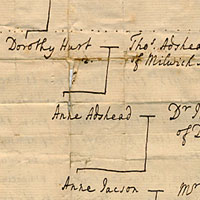 Dorothy Hurt — Thos. Adshead
of Milwich
Anne Adshead — Dr
of
Anne Jacson — Mr